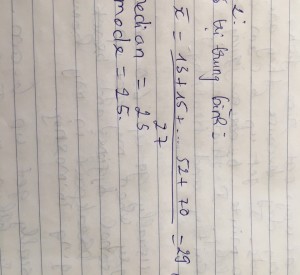 2:
trị trung bình =
x̄ = 13+15+... 52+70 = 29
27
median = 25
mode = 25.